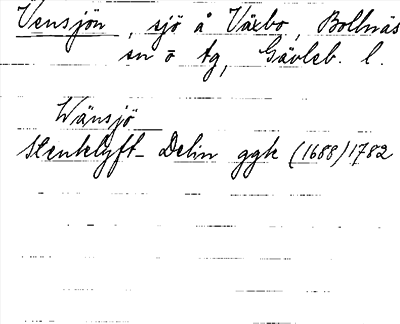 Vensjön, sjö å Växbo, Bollnäs
sn o tg, Gävleb. l.
Wänsjö
Stentelyft - Delin ggk (1688) 1782